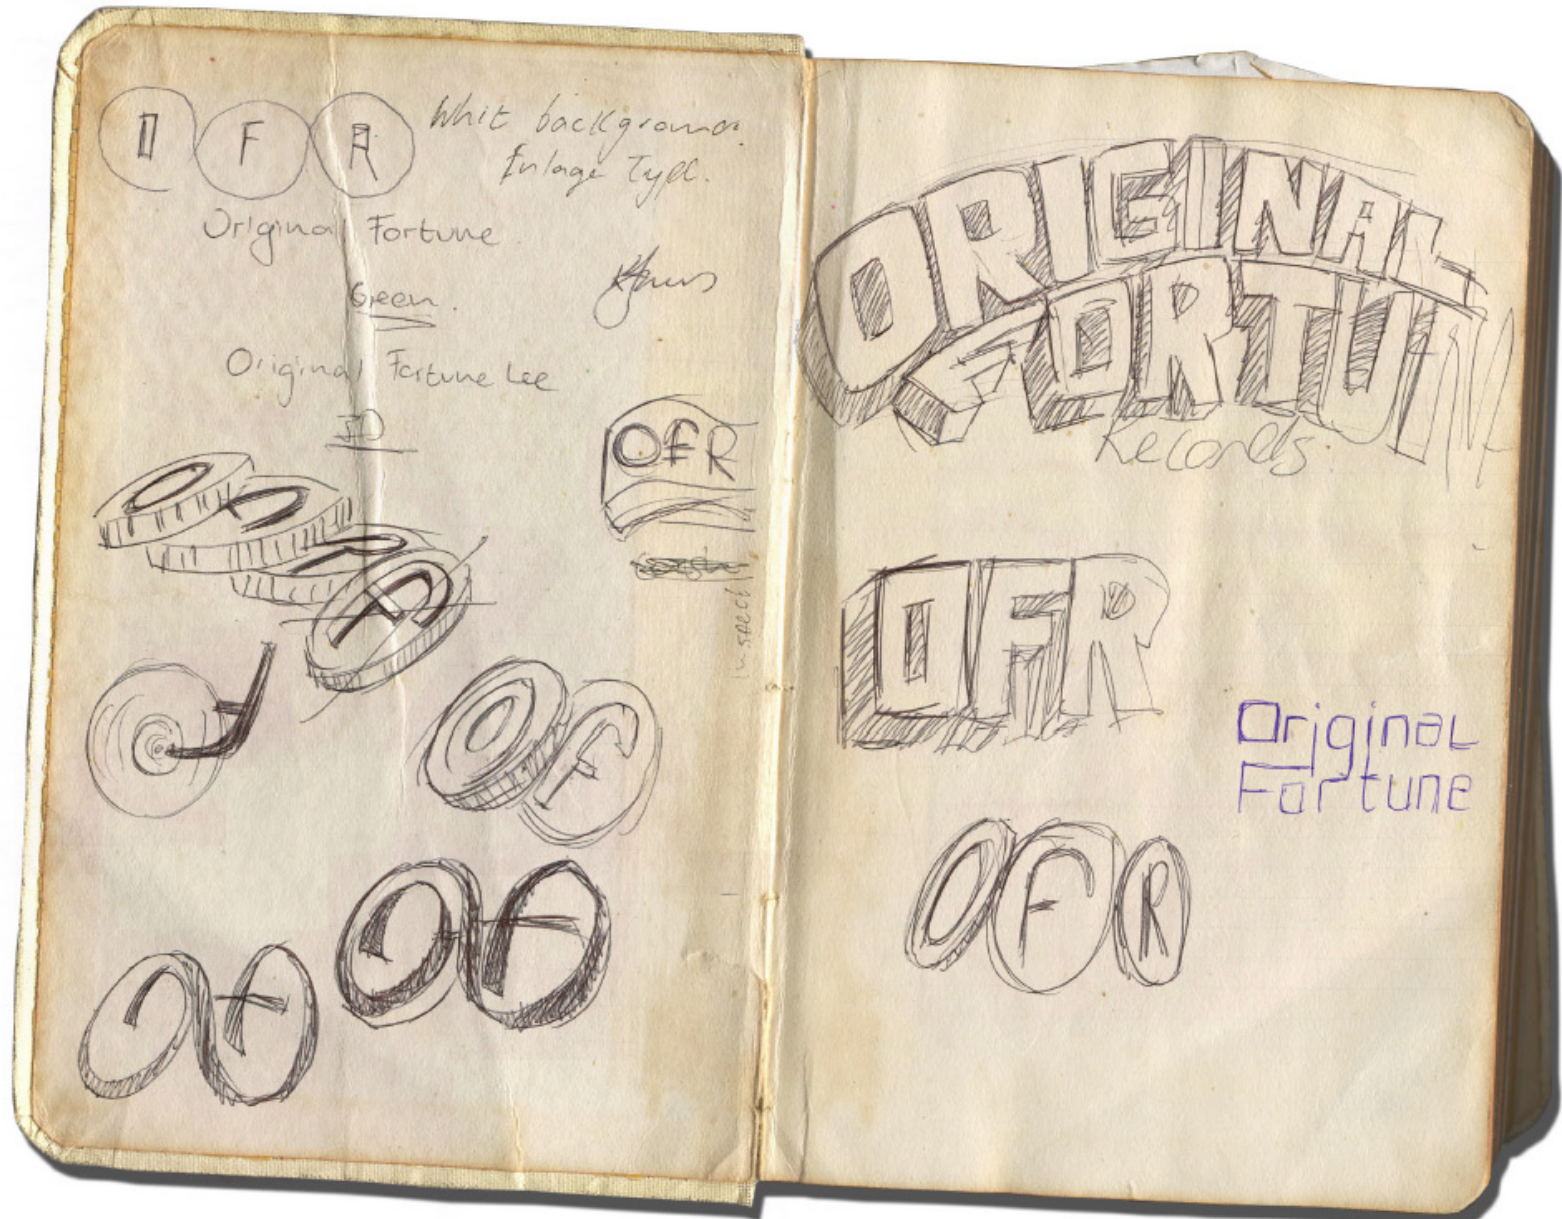 O F R
Whit background.
Enlage Type.
Original Fortune
Green.
Original Fortune Lee
OFR
O F
O F
O F
ORIGINAL
FORTUN
Records.
OFR
Original
Fortune
O F R